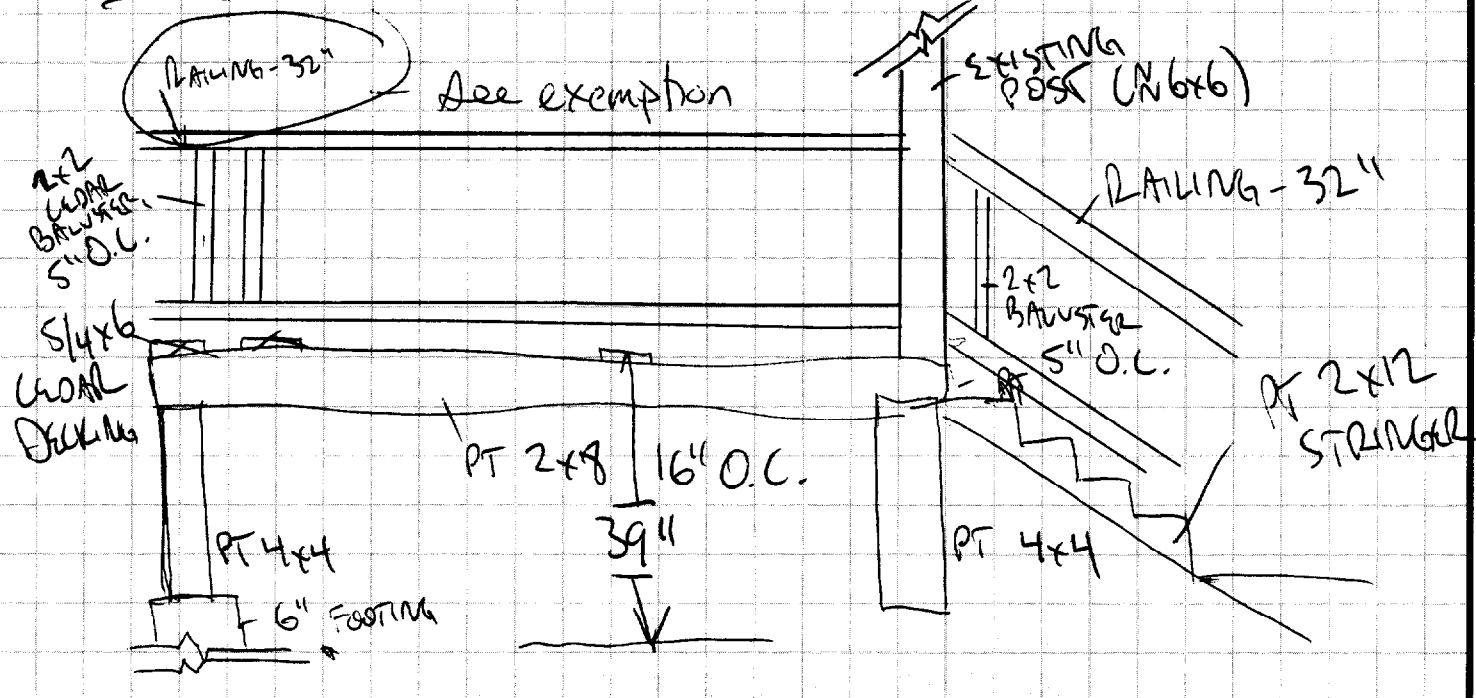 RAILING-32"
See exemption
EXISTING
POST (N 6x6)
2x2
CEDAR
BALUSTER
5" O.C.
RAILING-32"
2x2
BALUSTER
5" O.C.
5/4x6
CEDAR
DECKING
PT 2x8 16" O.C.
39"
PT 2x12
STRINGER
PT 4x4
PT 4x4
6" FOOTING